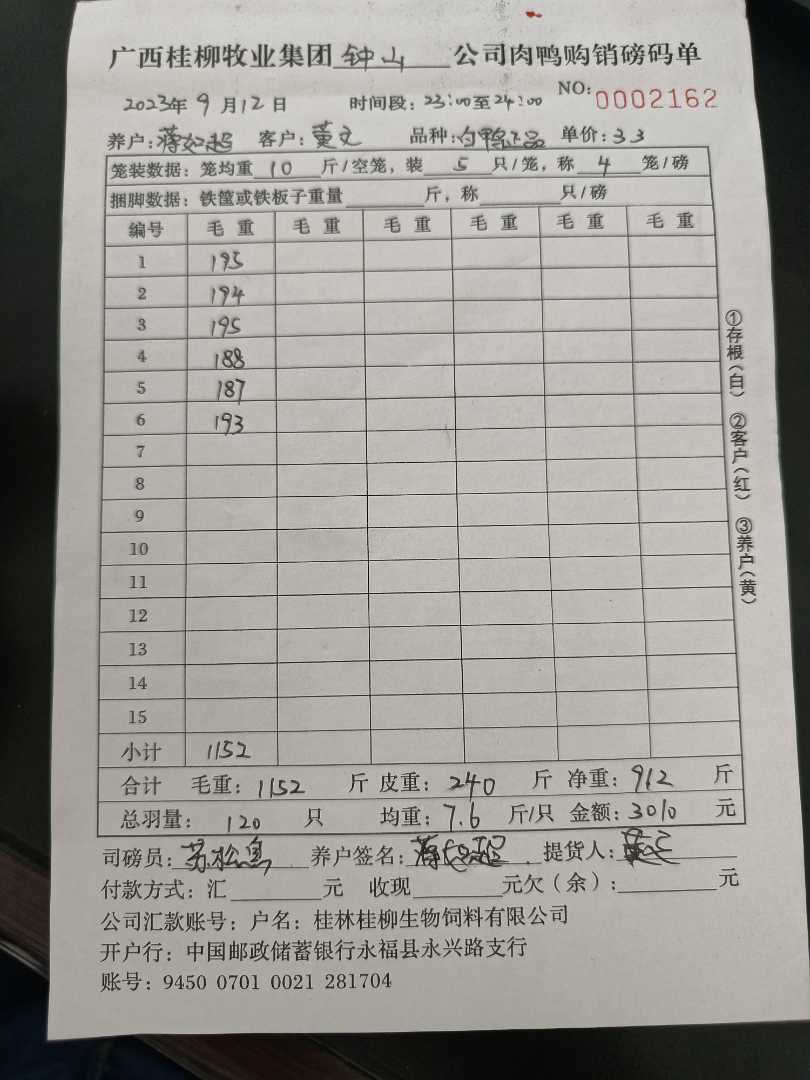 广西桂柳牧业集团钟山公司肉鸭购销磅码单
2023年9月12日 时间段：23:00至24:00 NO：0002162
养户： 客户：黄文 品种：白鸭正品 单价：3.3
笼装数据：笼均重10斤/空笼，装5只/笼，称4笼/磅
捆脚数据：铁筐或铁板子重量____斤，称____只/磅
编号 毛重 毛重 毛重 毛重 毛重 毛重
1 195
2 194
3 195
4 188
5 187
6 193
7
8
9
10
11
12
13
14
15
小计 1152
合计 毛重：1152 斤 皮重：240 斤 净重：912 斤
总羽量：120 只 均重：7.6 斤/只 金额：3010 元
司磅员： 养户签名： 提货人：
付款方式：汇____元 收现____元欠（余）：____元
公司汇款账号：户名：桂林桂柳生物饲料有限公司
开户行：中国邮政储蓄银行永福县永兴路支行
账号：9450 0701 0021 281704
①存根（白） ②客户（红） ③养户（黄）